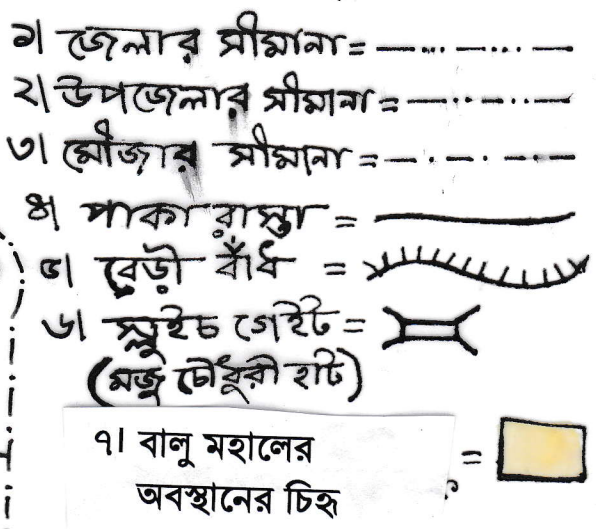 ১। জেলার সীমানা =
২। উপজেলার সীমানা =
৩। মৌজার সীমানা =
৪। পাকা রাস্তা =
৫। বেড়ী বাঁধ =
৬। স্লুইচ গেইট =
(মজু চৌধুরী হাট)
৭। বালু মহালের =
অবস্থানের চিহ্ন